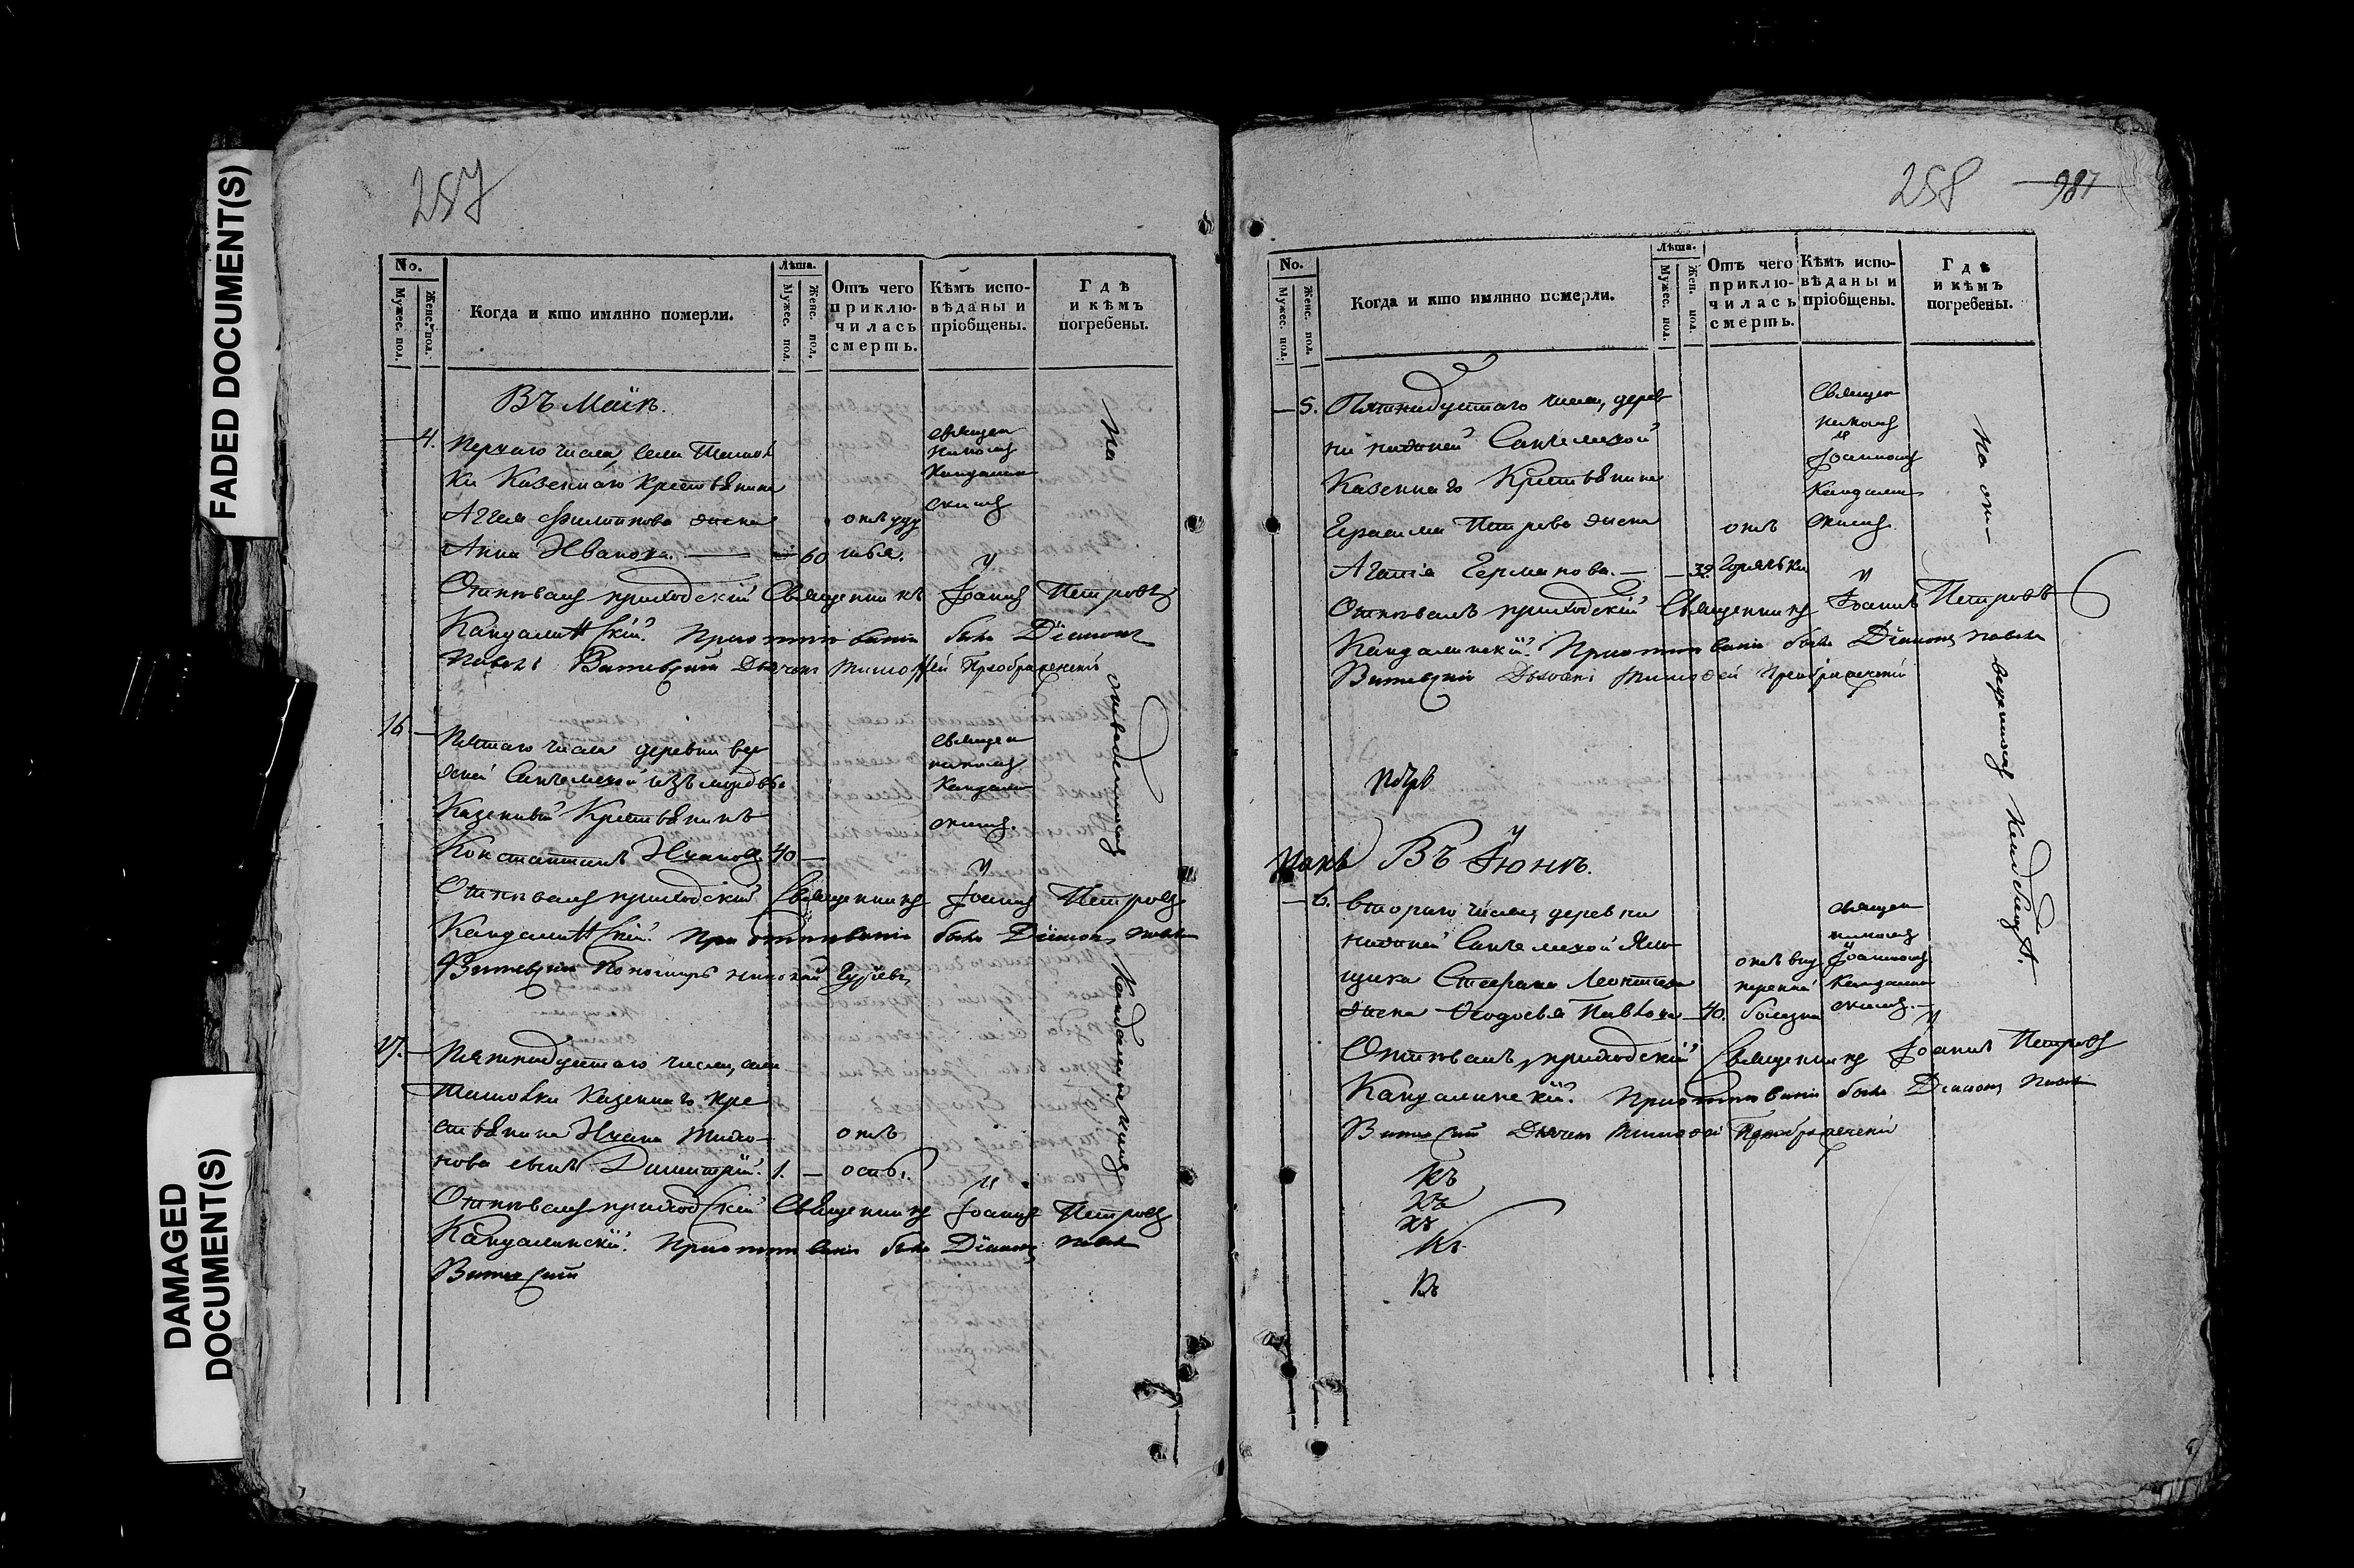 FADED DOCUMENT(S)
DAMAGED
DOCUMENT(S)
257
No.
Мужес. пол.
Женс. пол.
Когда и кто имянно померли.
Лѣта.
Мужес. пол.
Женс. пол.
Отъ чего
приклю-
чилась
смерть.
Кѣмъ испо-
вѣданы и
пріобщены.
Гдѣ
и кѣмъ
погребены.
Въ Маiѣ.
4. Перваго числа, села
ки Казеннаго Крестьянина
жена
Анна Иванова. — 60
Священ
никомъ
Кандалин
скимъ
На
Отпѣвалъ приходскій Священникъ Іоаннъ Петровъ
Кандалинскій. При отпѣваніи были Діаконъ
Павелъ Витевскій Дьячекъ Тимоѳей Преображенскій
16 — Пятаго числа деревни вер
хней изъ мордвы
Казенный Крестьянинъ
Константинъ Ивановъ 40 —
Священ
никомъ
Кандалин
скимъ.
отведенномъ
Отпѣвалъ приходскій Священникъ Іоаннъ Петровъ
Кандалинскій. При отпѣваніи были Діаконъ Павелъ
Витевскій Пономарь Николай Гурьевъ
кладбищѣ
17. — Пятнадцатаго числа, села
Казеннаго кре
стьянина Ивана
нова сынъ Димитрій. 1. —
отъ
оспы.
Отпѣвалъ приходскій Священникъ Іоаннъ Петровъ
Кандалинскій. При отпѣваніи были Діаконъ Павелъ
Витевскій
258
987
No.
Мужес. пол.
Женс. пол.
Когда и кто имянно померли.
Лѣта.
Мужес. пол.
Жен. пол.
Отъ чего
приклю-
чилась
смерть.
Кѣмъ испо-
вѣданы и
пріобщены.
Гдѣ
и кѣмъ
погребены.
— 5. Пятнадцатаго числа, дерев
ни нижней
Казеннаго Крестьянина
Герасима Петрова жена
Агапія Германова. — 39.
отъ
горячьки
Священ
никомъ
Іоанномъ
Кандалин
скимъ.
На от
Отпѣвалъ приходскій Священникъ Іоаннъ Петровъ
Кандалинскій. При отпѣваніи были Діаконъ Павелъ
Витевскій Дьячекъ Тимоѳей Преображенскій
веденномъ кладбищѣ.
Въ Іюнѣ.
— 6. Втораго числа, деревни
нижней Ям
щика Степана Леонтьева
жена Ѳеодосья Павлова — 40.
отъ вну
тренней
болезни
Священ
никомъ
Іоанномъ
Кандалин
скимъ. —
Отпѣвалъ приходскій Священникъ Іоаннъ Петровъ
Кандалинскій. При отпѣваніи были Діаконъ Павелъ
Витевскій Дьячекъ Тимоѳей Преображенскій